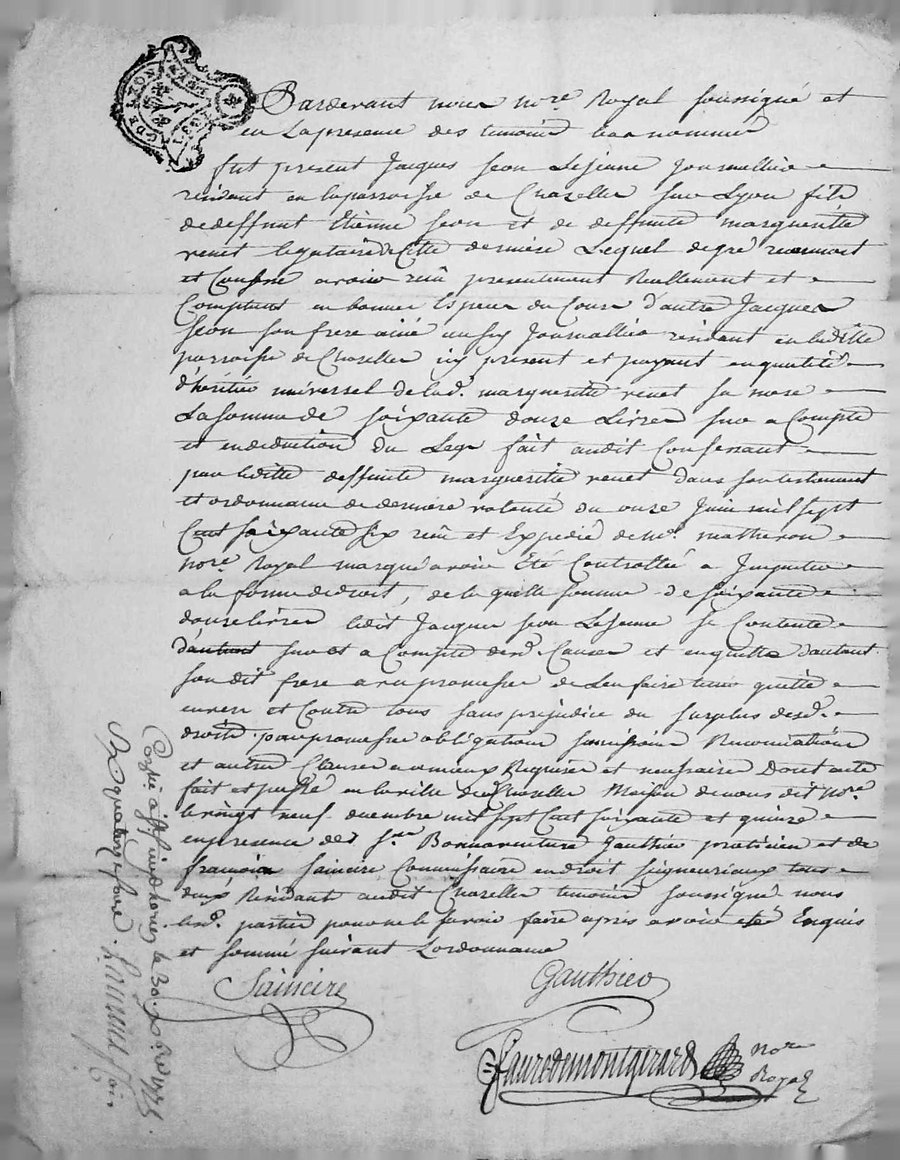 GDE LYON
Pardevant nous no.re Royal soussigné et
en La presence des temoins bas nommés
fut present Jacques Jeon Lejeune Journallier
residant en la parroisse de Chazelles sur Lyon fils
de deffunt Etienne Jeon et de deffunte margueritte
venet legataire de Cette derniere Lequel de gré reconnoit
et Confesse avoir reçû presentement Reellement et
Comptant en bonnes Especes du Cours d'autre Jacques
Jeon son frere ainé aussy Journallier residant en laditte
parroisse de Chazelles icy present et payant en qualité
d'héritier universel de lad. margueritte venet sa mere
La somme de soixante douze Livres sur et a Compte
et en deduction du Legs fait audit Confessant
par laditte deffunte marguerite venet dans son testament
et ordonnance de derniere volonté du onze Juin mil sept
Cent soixante six reçû et Expedié de m.e matheron
no.re Royal marqué avoir Eté Controllée et Insinuée
a la forme de droit, de la quelle somme de soixante
douze livres ledit Jacques Jeon Lejeune se Contente
d'autant sur et a Compte desd. Causes et en quitte d'autant
son dit frere avec promesse de L'en faire tenir quitte
envers et Contre tous sans prejudice du surplus desd.
droits. par promesse obligation soumission Renonciation
et autres Clauses au mieux Requises et necessaires Dont acte
fait et passé en la ville de Chazelles Maison de nous dit no.re
le vingt neuf decembre mil sept Cent soixante et quinze
en presence de s.r Bonnaventure Gauthier praticien et de
francois Saincire Commissaire en droit seigneuriaux tous
deux Résidant audit Chazelles temoins soussignés nous
lesd. parties pour ne le savoir faire après avoir eté Enquis
et sommé suivant L'ordonnance
Saincire
Gauthier
fauredemontgirard no.re
Royal
a Chazelles le 30. x.bre 1775
R. quatorze sols.